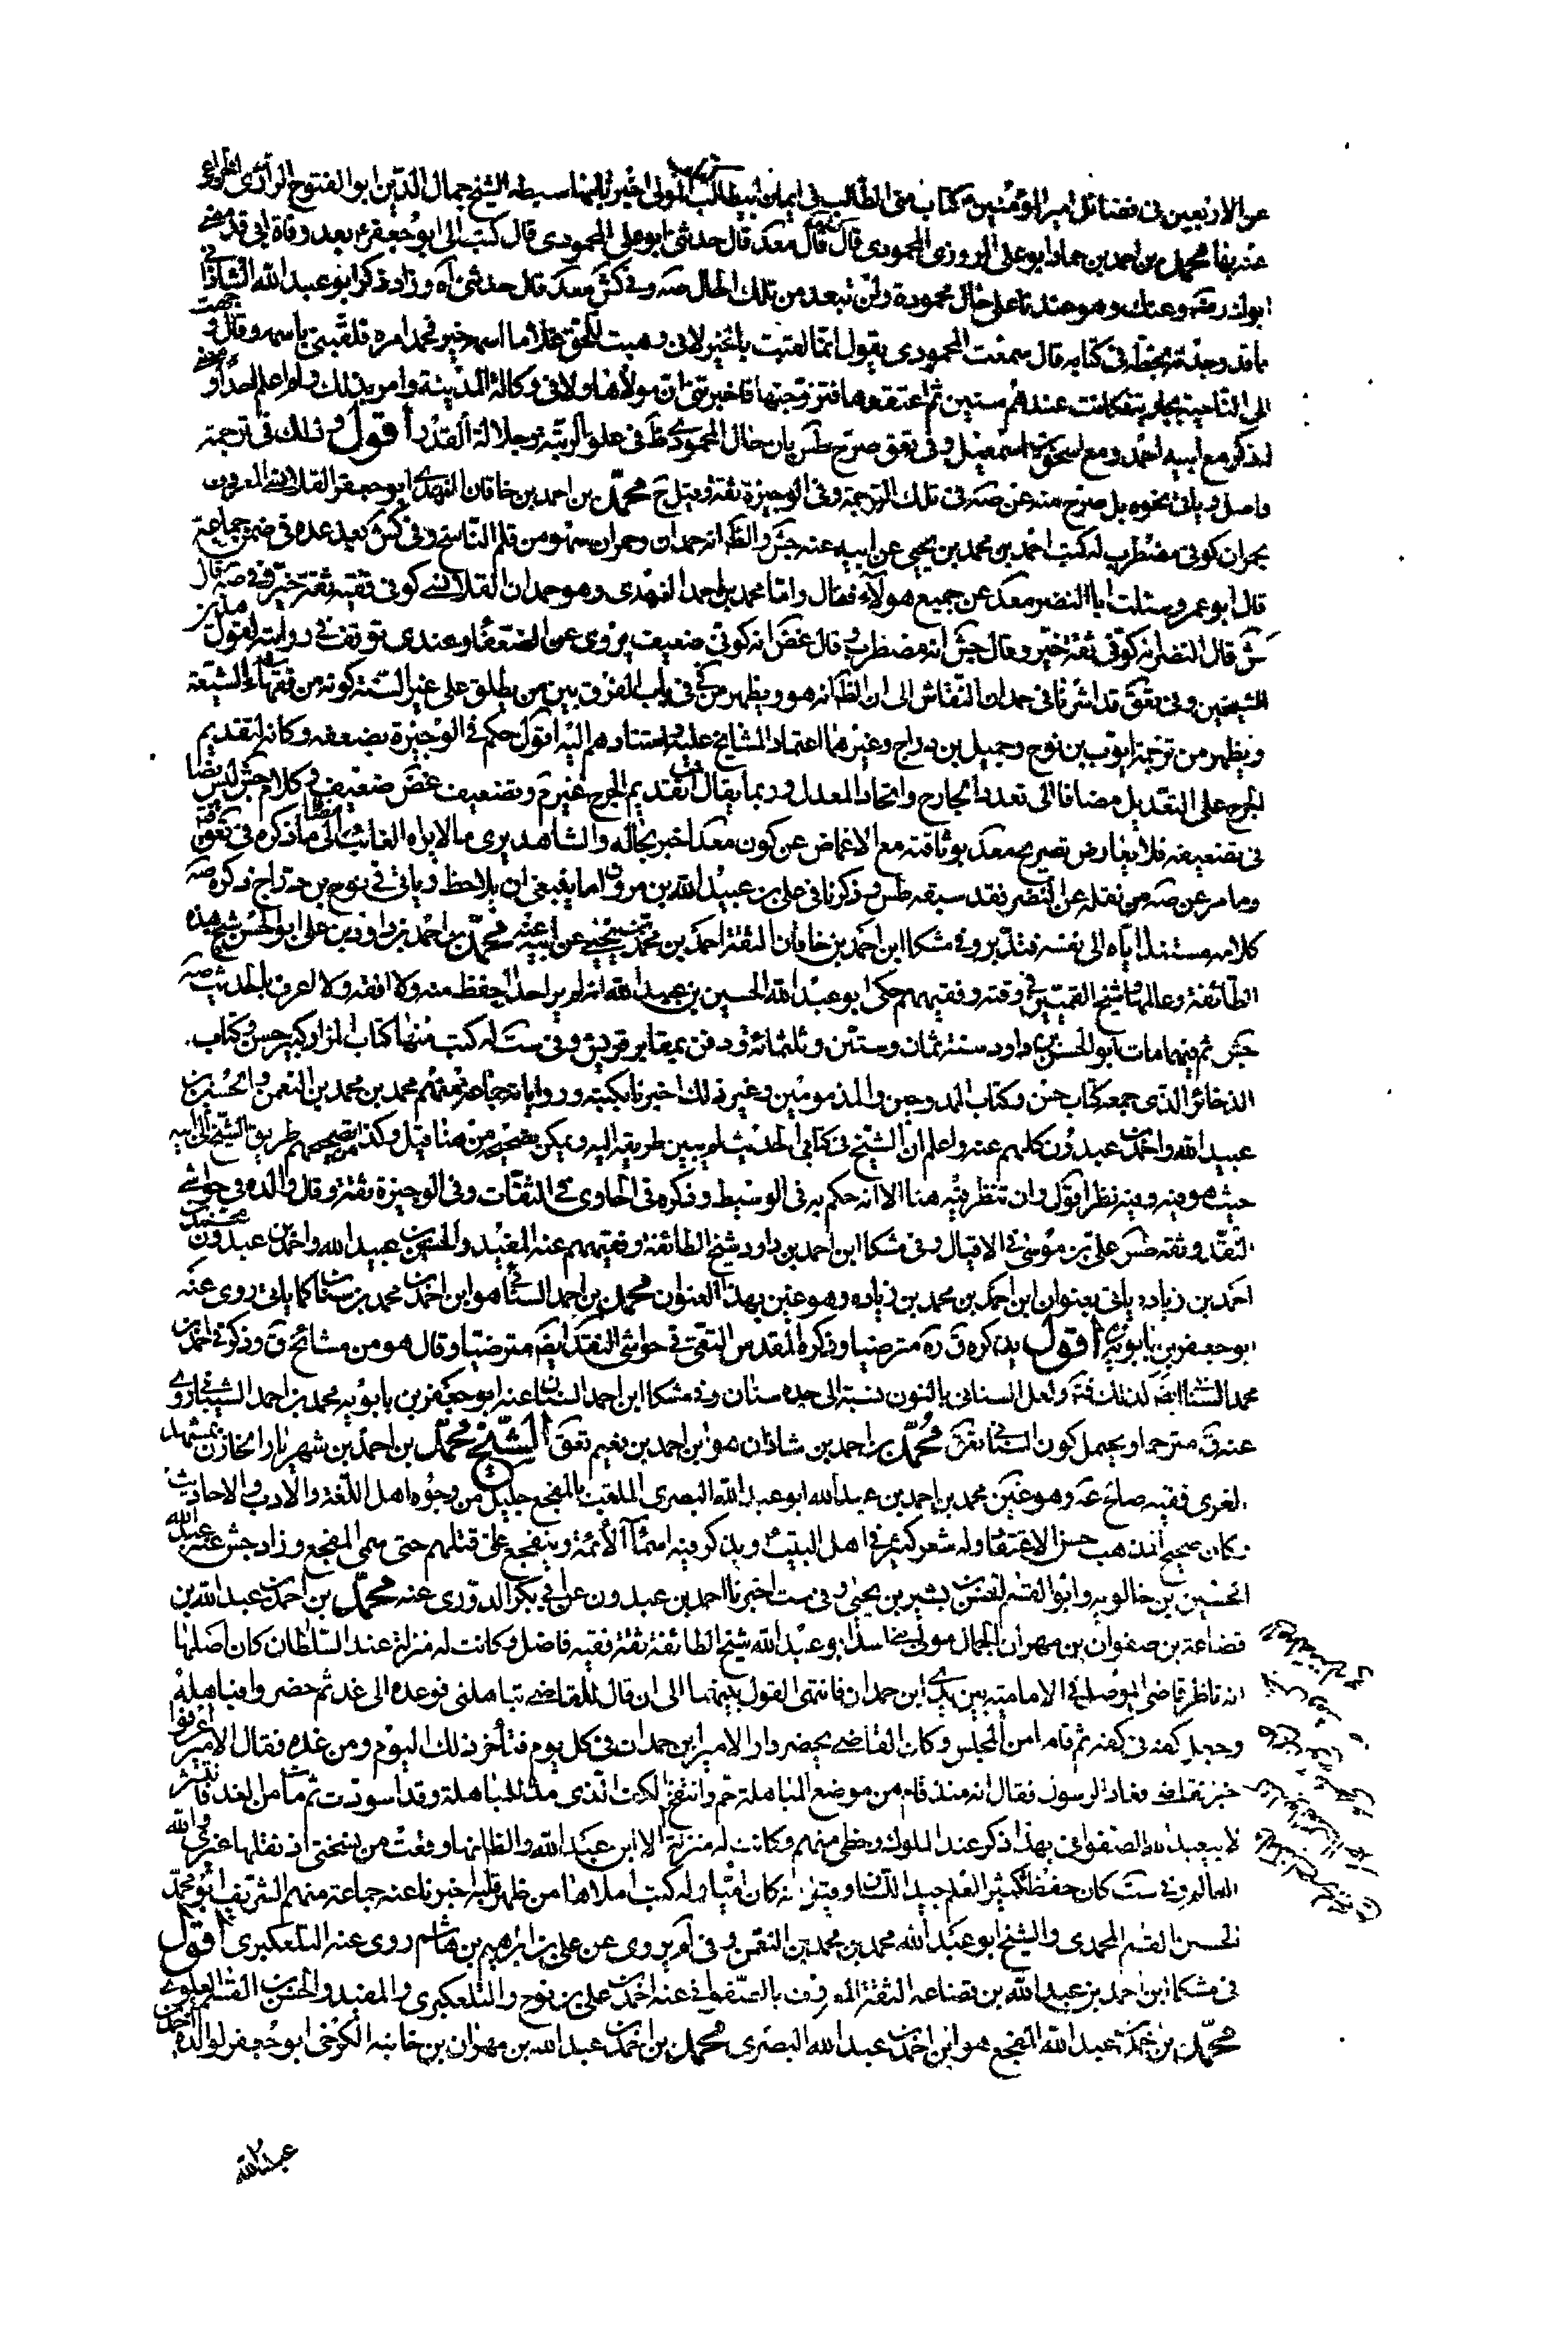 عن الاربعين فى فضائل امير المؤمنين كتاب منى الطالب فى ايمان ابيطالب المولى اخبرنا بهما سبطه الشيخ جمال الدين ابو الفتوح الرازى الخزاعى
عنه بهما محمد بن احمد بن حماد ابو على المروزى المحمودى قال قال معكد قال حدثنى ابو على المحمودى قال كتب الى ابو جعفر ع بعد وفاة ابى قد مضى
ابوك رضه وعنك وهو عندنا على حال محمودة ولن تبعد من تلك الحال صه وفى كش معكد قال حدثنى آه وزاد ذكر ابو عبد الله الشاذانى
ما قد وجدته بخطه فى كتابه قال سمعت المحمودى يقول انما لقبت بالخير لانى وهبت للحق غلاما اسمه خير فحمد امره فلقبنى باسمه وقال وجهت
الى الناحية بجارية فكانت عندهم سنين ثم اعتقوها فتزوجتها فاخبرتنى ان مولاها ولانى وكالة المدينة وامر بذلك ولم اعلم احدا ومضى
له ذكر مع ابيه احمد ومع اسحق بن اسمعيل وفى تعق صرح طس بان حال المحمودى ظ فى علو الرتبة وجلالة القدر أقول وذلك فى ترجمة
واصل وياتى نحوه بل صرح منه عن صه فى تلك الترجمة وفى الوجيزة ثقة وقيل ح محمد بن احمد بن خاقان النهدى ابو جعفر القلانسى المعروف
بحمران كوفى مضطرب له كتب احمد بن محمد بن يحيى عن ابيه عنه جش والظ انه حمدان وحمران سهو من قلم الناسخ وفى كش بعيد عده فى ضمن جماعة
قال ابو عمرو سئلت ابا النضر معكد عن جميع هؤلاء فقال واما محمد بن احمد النهدى وهو حمدان القلانسى كوفى فقيه ثقة خير وفى صه قال
كش قال النضر انه كوفى ثقة خير وقال جش انه مضطرب وقال غض انه كوفى ضعيف يروى عن الضعفاء وعندى توقف فى روايته لقول هذين
الشيخين وفى تعق قد اشرنا فى حمدان النقاش الى ان الظ انه هو ويظهر من كش فى باب الفرق بين من يطلق على غير السنة كونه من فقهاء الشيعة
ويظهر من ترجمة ايوب بن نوح وجميل بن دراج وغيرهما اعتماد المشايخ عليه واستنادهم اليه اقول حكم فى الوجيزة بضعفه وكانه لتقديم
الجرح على التعديل مضافا الى تعدد الجارح واتحاد المعدل وربما يقال بتقديم الجرح غيرم وتضعيف غض ضعيف وكلام جش ليس نصا
فى تضعيفه فلا يعارض تصريح معكد بوثاقته مع الاغماض عن كون معكد اخبر بحاله والشاهد يرى مالا يراه الغائب الى ما ذكره فى تعق
وما مر عن صه من نقله عن النضر فقد سبقه طس وذكرنا فى على بن عبيد الله بن مروان ما ينبغى ان يلاحظ وياتى فى نوح بن دراج ذكره صه
كلامه مستندا اياه الى نفسه فتدبر وفى مشكا ابن احمد بن خاقان الثقة احمد بن محمد بن يحيى عن ابيه عنه محمد بن احمد بن داود بن على ابو الحسن شيخ هذه
الطائفة وعالمها وشيخ القميين فى وقته وفقيههم حكى ابو عبد الله الحسين بن عبيد الله انه لم ير احدا احفظ منه ولا افقه ولا اعرف بالحديث صه
جش ثم فيهما مات ابو الحسن بن داود سنة ثمان وستين وثلثمائة ودفن بمقابر قريش وفى ست له كتب منها كتاب المزار كبير حسن وكتاب
الذخائر الذى جمعه كتاب حسن وكتاب الممدوحين والمذمومين وغير ذلك اخبرنا بكتبه ورواياته جماعة منهم محمد بن محمد بن النعمن والحسين بن
عبيد الله واحمد بن عبدون كلهم عنه واعلم ان الشيخ فى كتابى الحديث لم يبين طريقه اليه ويمكن تصحيحه من هنا قيل وكذا تصحيحهم طريق الشيخ الى ابيه
حيث هو فيه وفيه نظر اقول وان تنظر فيه هنا الا انه حكم به فى الوسيط وذكره فى الحاوى فى الثقات وفى الوجيزة ثقة وقال والده فى حواشى
النقد وثقه طس على بن موسى فى الاقبال وفى مشكا ابن احمد بن داود شيخ الطائفة وفقيههم عنه المفيد والحسين بن عبيد الله واحمد بن عبدون محمد بن
احمد بن زياد ياتى بعنوان ابن احمد بن محمد بن زياده وهو عين بهذا العنوان محمد بن احمد السنانى هو ابن احمد بن محمد بن سنان كما ياتى روى عنه
ابو جعفر بن بابويه أقول يذكره ق ره مترضيا وذكره المقدس التقى فى حواشى النقد ايضا مترضيا وقال هو من مشائخ ق وذكر فى احمد بن
محمد السنا ايض كذلك فته ولعل السنانى بالنون نسبة الى جده سنان وفى مشكا ابن احمد السنانى عنه ابو جعفر بن بابويه محمد بن احمد الشيبانى روى
عنه ق مترحما ويحتمل كون السنانى تعق محمد بن احمد بن شاذان هو ابن احمد بن نعيم تعق الشيخ محمد بن احمد بن شهريار الخازن بمشهد
الغرى فقيه صالح عه وهو عين محمد بن احمد بن عبد الله ابو عبد الله البصرى الملقب بالمفجع جليل من وجوه اهل اللغة والادب والاحاديث
وكان صحيح المذهب حسن الاعتقاد وله شعر كثير فى اهل البيت ويذكر فيه اسماء الأئمة ويتفجع على قتلهم حتى سمى المفجع وزاد جش عنه ابو عبد الله
الحسين بن خالويه وابو القسم الحسن بن بشير بن يحيى وفى ست اخبرنا احمد بن عبدون عن ابى بكر الدورى عنه محمد بن احمد بن عبد الله بن
قضاعة بن صفوان بن مهران الجمال مولى بنى اسد ابو عبد الله شيخ الطائفة ثقة فقيه فاضل وكانت له منزلة عند السلطان كان اصلها
انه ناظر قاضى الموصل فى الامامة بين يدى ابن حمدان فانتهى القول بينهما الى ان قال للقاضى تباهلنى فوعده الى غد ثم حضر وافباهله
وجعل كفه فى كفه ثم قاما من المجلس وكان القاضى يحضر دار الامير ابن حمدان فى كل يوم فتأخر ذلك اليوم ومن غده فقال الامير اعرفوا
خبر القاضى فعاد الرسول فقال انه منذ قام من موضع المباهلة حم وانتفخ الكف الذى مد للمباهلة وقد اسودت ثم مات من الغد فانتشر
لابى عبد الله الصفوانى بهذا ذكر عند الملوك وحظى منهم وكانت له منزلة الا ابن عبد الله والظ انها وقعت من نسختى اذ نقلها غيرى والله
العالم وفى ست كان حفظه كثير العلم جيد اللسان وقيل انه كان اميا وله كتب املاها من ظهر قلبه اخبرنا عنه جماعة منهم الشريف ابو محمد
الحسن بن القسم المحمدى والشيخ ابو عبد الله محمد بن محمد بن النعمن وفى لم يروى عن على بن ابرهيم بن هاشم روى عنه التلعكبرى أقول
فى مشكا ابن احمد بن عبد الله بن قضاعه الثقة المعروف بالصفوانى عنه احمد بن على بن نوح والتلعكبرى والمفيد والحسن بن القسم العلوى
محمد بن احمد بن عبد الله المفجع هو ابن احمد بن عبد الله البصرى محمد بن احمد بن عبد الله بن مهران بن خانبه الكرخى ابو جعفر لوالده احمد بن
عبد الله